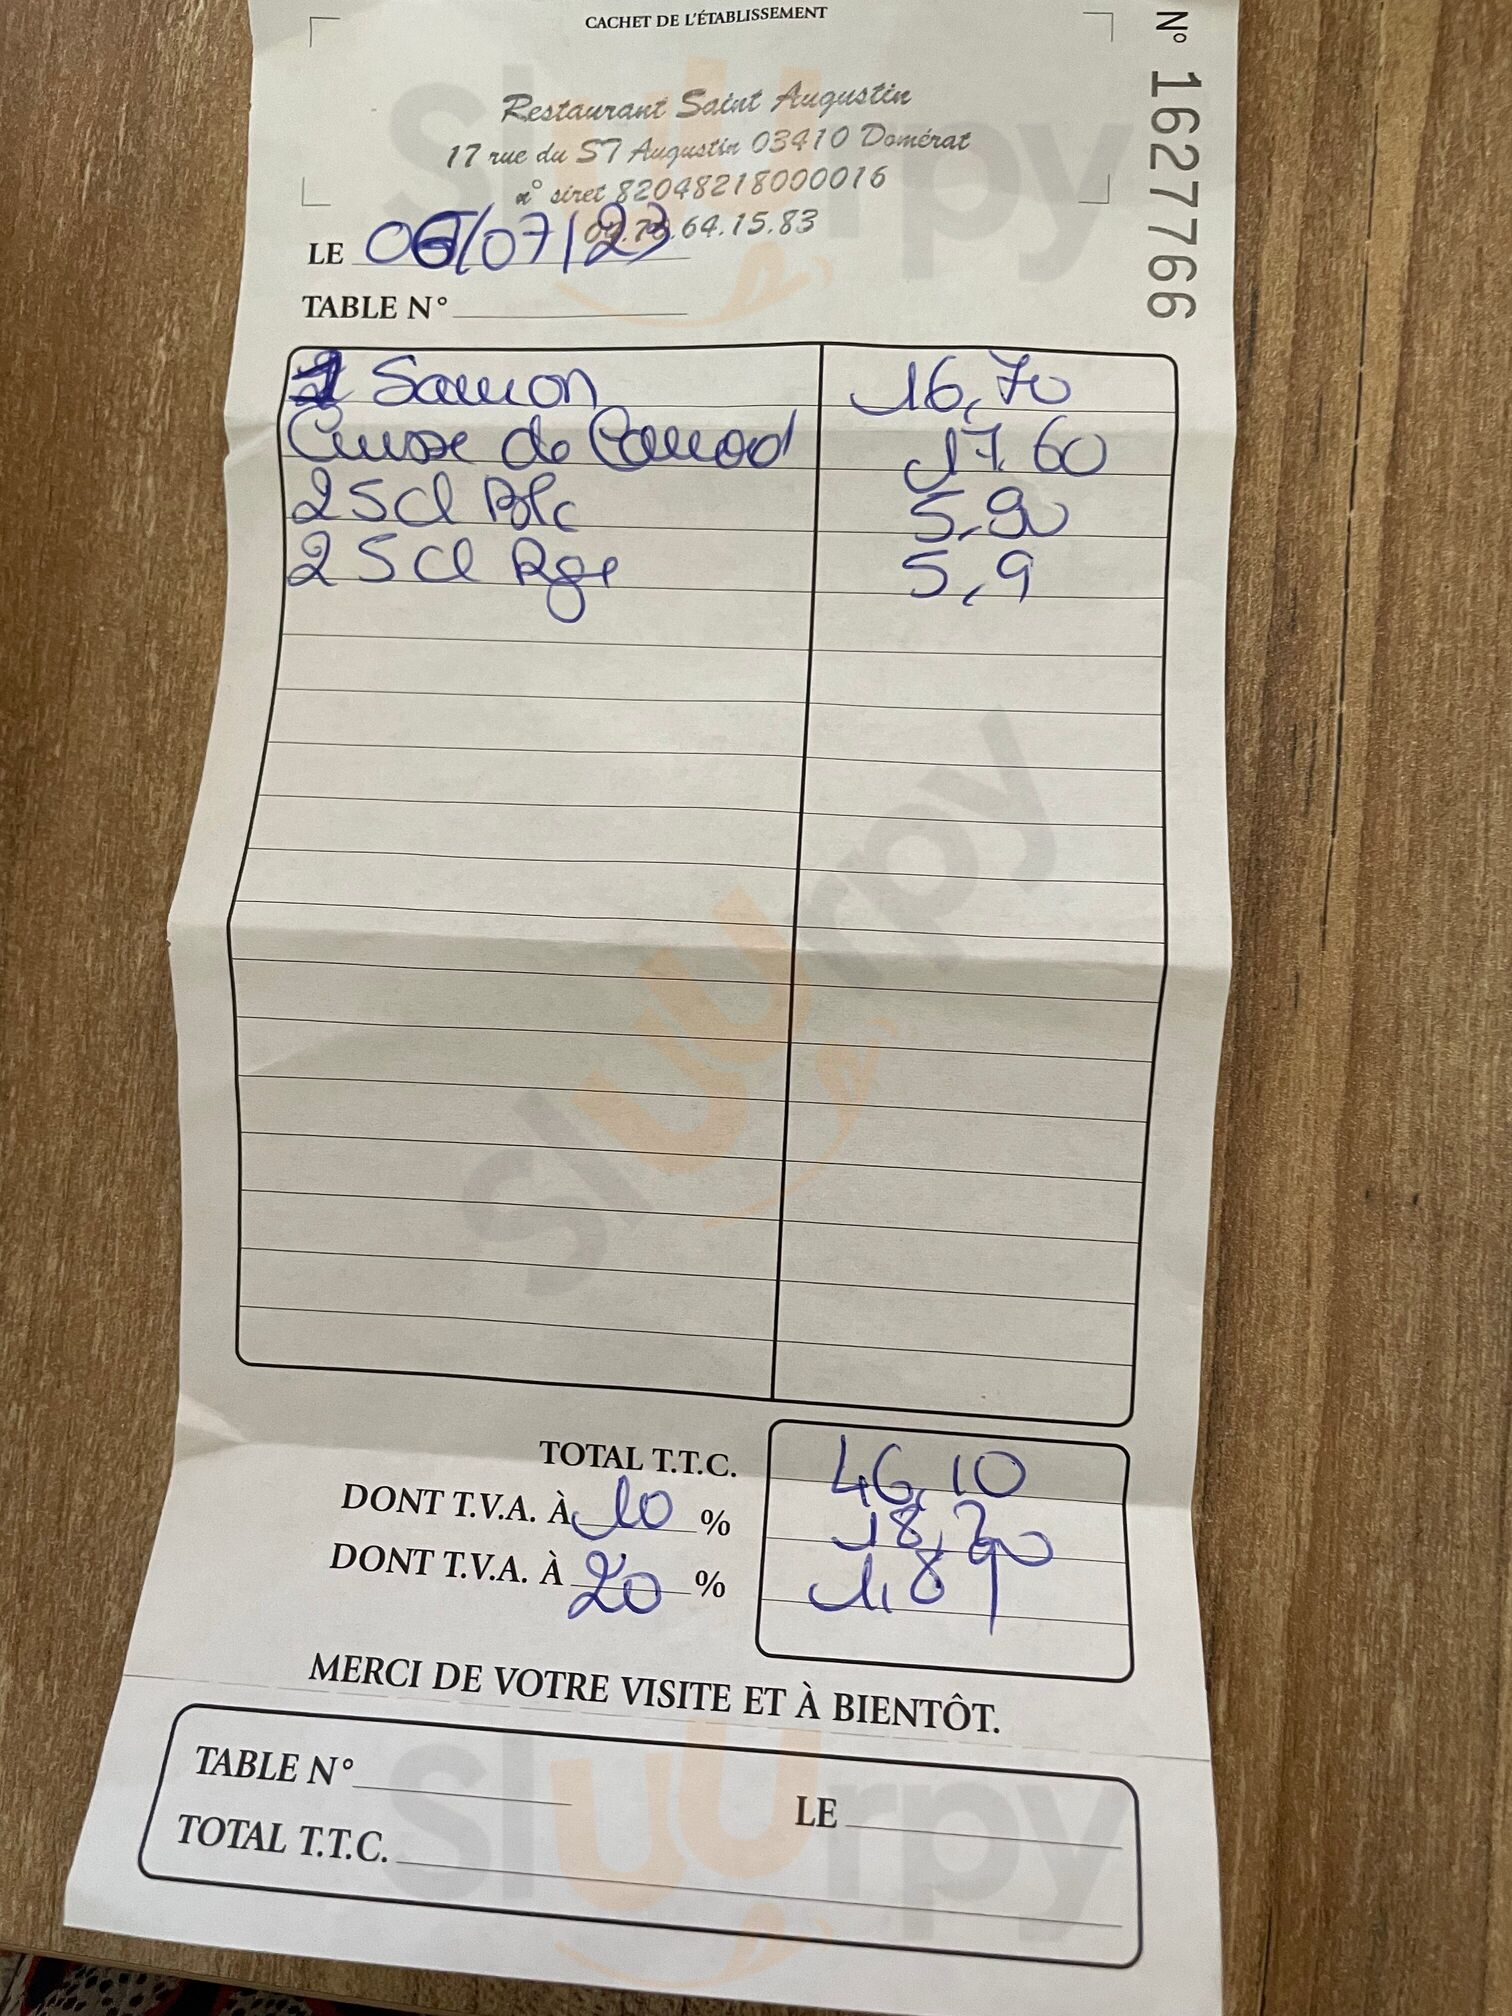 CACHET DE L'ÉTABLISSEMENT
N° 1627766
Restaurant Saint Augustin
17 rue du ST Augustin 03410 Domérat
n° siret 82048218000016
.64.15.83
LE 06/07/23
TABLE N°
1 Saumon 16,70
Cuisse de Canard 17.60
25cl Blc 5,90
25cl Rge 5,9
TOTAL T.T.C. 46,10
DONT T.V.A. À 10 %
DONT T.V.A. À 20 %
MERCI DE VOTRE VISITE ET À BIENTÔT.
TABLE N° LE
TOTAL T.T.C.
sluurpy
sluurpy
sluurpy